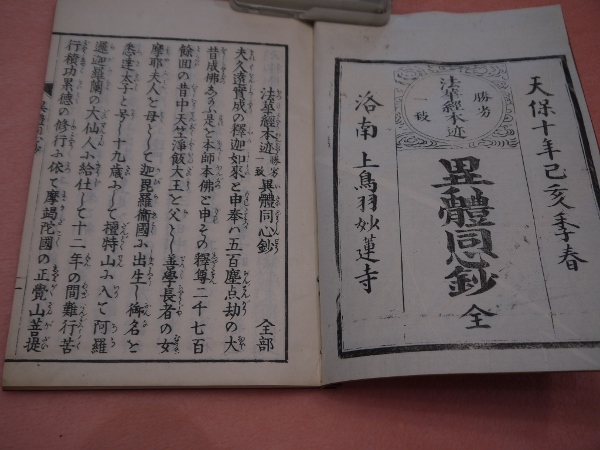 天保十年己亥季春
法華經本迹
勝劣
一致
異體同心鈔 全
洛南 上鳥羽妙蓮寺
法華經本迹勝劣一致異體同心鈔 全部
夫久遠實成の釋迦如來と申奉ハ五百塵点劫の大
昔成佛し是と本師本佛と申その釋尊二千七百
餘回の昔中天竺淨飯大王と父とし善學長者の女
摩耶夫人と母として迦毘羅衛國ふ出生し御名と
悉達太子と号し十九歳ふして檀特山ふ入て阿羅
邏迦羅蘭の大仙人ふ給仕して十二年の間難行苦
行積功累徳の修行ふ依て摩竭陀國の正覺山菩提